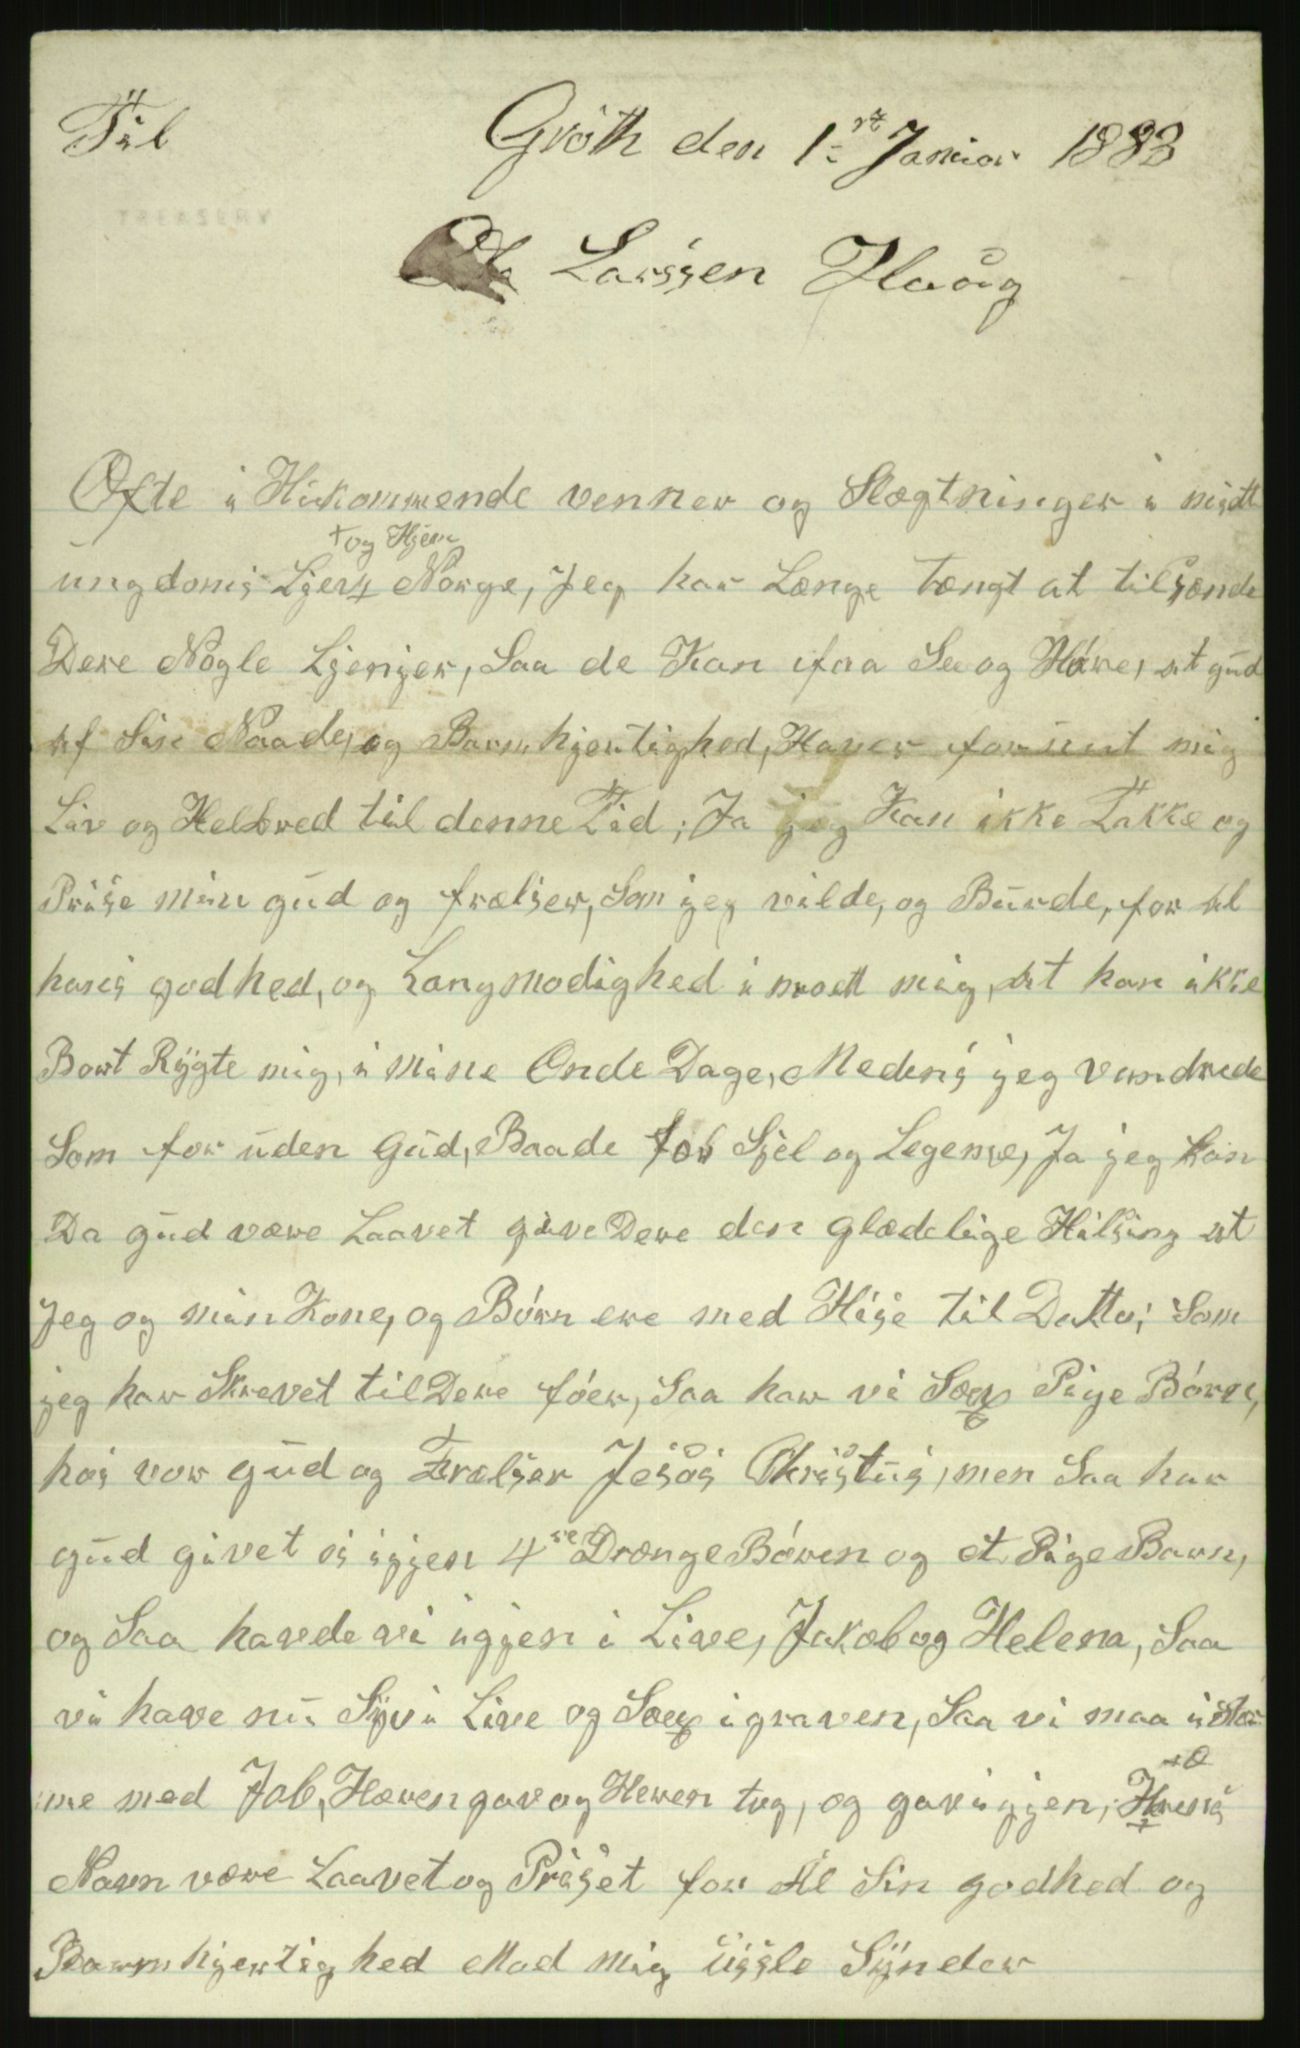 Til Gróth den 1st Januar 1883
TREASURY
Ola Larssen Haúg
Ofte i Hukommende venner og Slægtninger i mitt
ungdoms Hjem + Norge, Jeg har Længe tængt at tilsænde
+ og Hjem
Dere Nógle Ljenjer, Saa de Kan ifaa See og Hóre, at gud
af Sin Naade, og Barmhjertighed, Haver forunt mig
Liv og Helbred til denne Tid; Ja jeg Kan ikke Takke og
Prise min gud og frælser, Som jeg vilde, og Burde, for al
hans godhed, og Langmodighed i modt mig, at han ikke
Bort Rygte mig, i Mine Onde Dage, Medens jeg vandrede
Som for uden Gud, Baade for Sjel og Legeme, Ja jeg kan
Da gud være Laavet give Dere den glædelige Hilsing at
Jeg og min Kone, og Bórn ere med Hise til Datto; Som
jeg har Skrevet til Dere fóer, Saa har vi Sex Pige Bórn,
hos vor gud og Frælser Jesós Christus, men Saa har
gud givet os igjen 4re Drænge Bóren og et Pige Barn,
og Saa havde vi igjen i Live, Jakob og Helena, Saa
vi have nu Syv i Live og Sex i graven, Saa vi maa istæ
me med Job, Hæren gav og Heren tog, og gav igjen, Herens
Navn være Laavet og Priset for Al Sin godhed og
Barmhjertighed Mod mig Ussle Synder